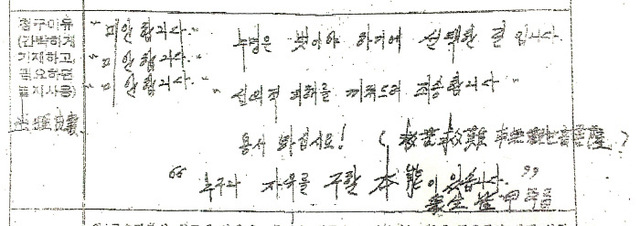 청구이유 "미안합니다." 누명은 벗어야 하기에 선택한 길입니다.
(간략하게 "미안합니다."
기재하고, "미안합니다." "심의적 피해를 끼쳐드려 죄송합니다"
필요하면
별지사용) 용서 하십시요! (救苦救難
"누구나 자유를 구할 本能이 있습니다."